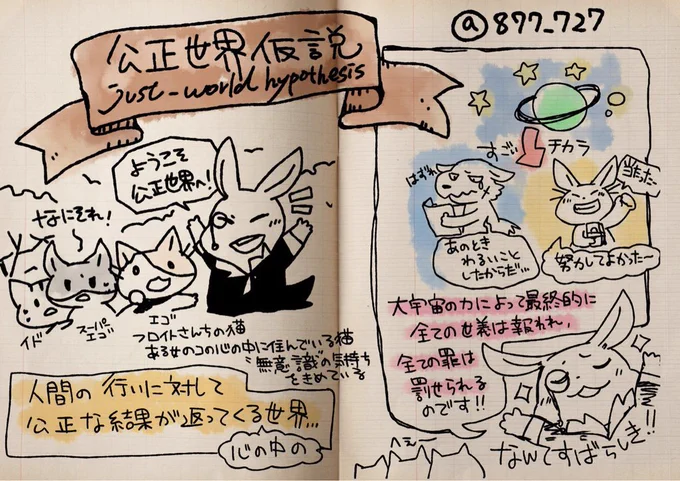 公正世界仮説
just-world hypothesis
ようこそ
公正世界へ!
なにそれ!
イド
スーパー
エゴ
エゴ
フロイトさんちの猫
ある女のコの心の中に住んでいる猫
"無意識"の気持ち
をきめている
人間の行いに対して
公正な結果が返ってくる世界…
心の中の
@877_727
すごいチカラ
はずれ
当たー
あのとき
わるいこと
したからだ…
努力してよかったー
大宇宙の力によって最終的に
全ての正義は報われ,
全ての罪は
罰せられる
のです!!
へぇー
なんてすばらしき!!